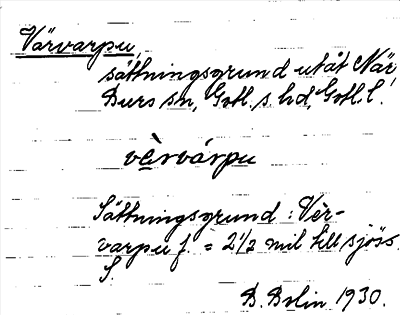 Värvarpu,
sättningsgrund utåt När,
Burs sn, Gotl. s. hd, Gotl. l.
vèrvárpu
Sättningsgrund : Vèr-
varpu f. = 2 1/2 mil till sjöss.
S.
B. Bolin 1930.